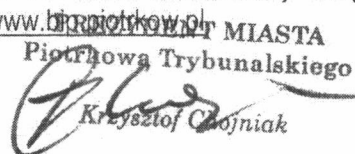 www.bip.piotrkow.pl
PREZYDENT MIASTA
Piotrkowa Trybunalskiego
Krzysztof Chojniak